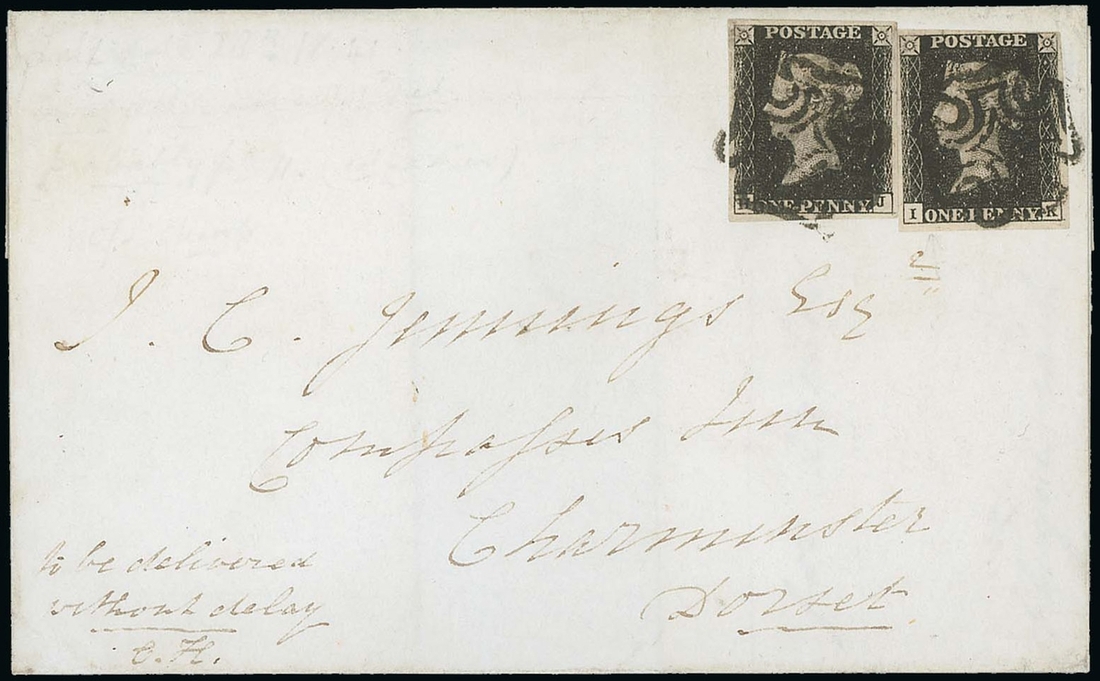 POSTAGE
ONE PENNY.
J
POSTAGE
I ONE PENNY. K
J. C. Jennings Esq
Compasses Inn
Charminster
Dorset.
to be delivered
without delay
C. H.